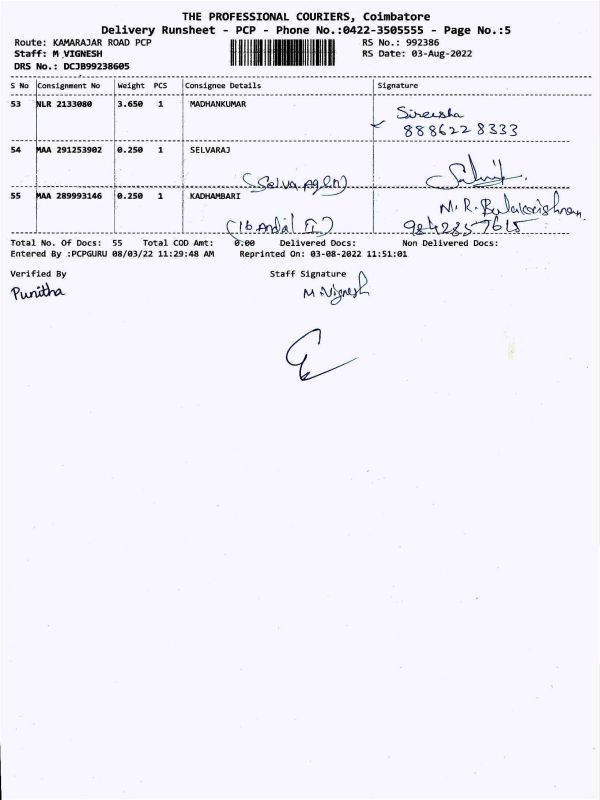 THE PROFESSIONAL COURIERS, Coimbatore
Delivery Runsheet - PCP - Phone No.:0422-3505555 - Page No.:5
Route: KAMARAJAR ROAD PCP RS No.: 992386
Staff: M VIGNESH RS Date: 03-Aug-2022
DRS No.: DCJB99238605
S No Consignment No Weight PCS Consignee Details Signature
53 NLR 2133080 3.650 1 MADHANKUMAR
Sireesha
8886228333
54 MAA 291253902 0.250 1 SELVARAJ
(Selva Agen)
55 MAA 289993146 0.250 1 KADHAMBARI
M.R. Balakrishnan
(16 Andal 9842857615
Total No. Of Docs: 55 Total COD Amt: 0.00 Delivered Docs: Non Delivered Docs:
Entered By :PCPGURU 08/03/22 11:29:48 AM Reprinted On: 03-08-2022 11:51:01
Verified By Staff Signature
Punitha M.Vignesh